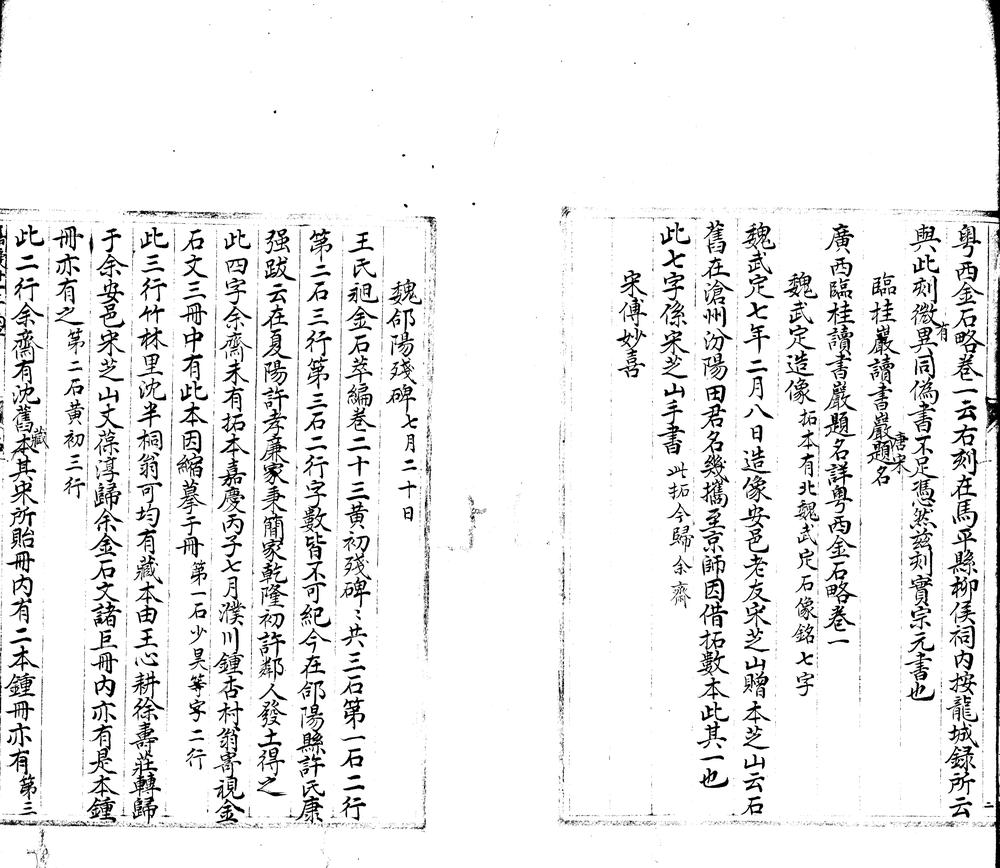 粤西金石略卷一云右刻在馬平縣柳侯祠内按龍城録所云
與此刻微有異同偽書不足憑然兹刻實宗元書也
臨桂巖讀書巖唐宋題名
廣西臨桂讀書巖題名詳粤西金石略卷一
魏武定造像拓本有北魏武定石像銘七字
魏武定七年二月八日造像安邑老友宋芝山贈本芝山云石
舊在滄州汾陽田君名幾攜至京師因借拓數本此其一也
此七字係宋芝山手書此拓今歸余齋
宋傅妙喜
魏郃陽殘碑七月二十日
王氏昶金石萃編卷二十三黄初殘碑〻共三石第一石二行
第二石三行第三石二行字數皆不可紀今在郃陽縣許氏康
强跋云在夏陽許孝廉家秉簡家乾隆初許鄰人發土得之
此四字余齋未有拓本嘉慶丙子七月濮川鍾杏村翁寄視金
石文三冊中有此本因縮摹于冊第一石少昊等字二行
此三行竹林里沈半桐翁可均有藏本由王心耕徐壽莊轉歸
于余安邑宋芝山丈葆淳歸余金石文諸巨冊内亦有是本鍾
冊亦有之第二石黄初三行
此二行余齋有沈舊藏本其宋所貽冊内有二本鍾冊亦有第三